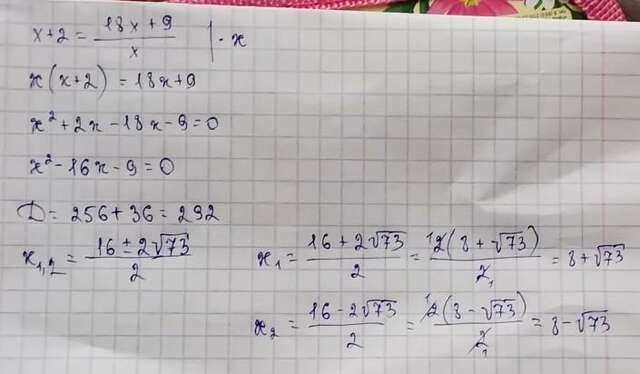 x+2 = (18x+9)/x | · x
x(x+2) = 18x+9
x²+2x-18x-9=0
x²-16x-9=0
D= 256+36=292
x₁,₂ = (16±2√73)/2
x₁ = (16+2√73)/2 = ¹2(8+√73)/2₁ = 8+√73
x₂ = (16-2√73)/2 = ¹2(8-√73)/2₁ = 8-√73